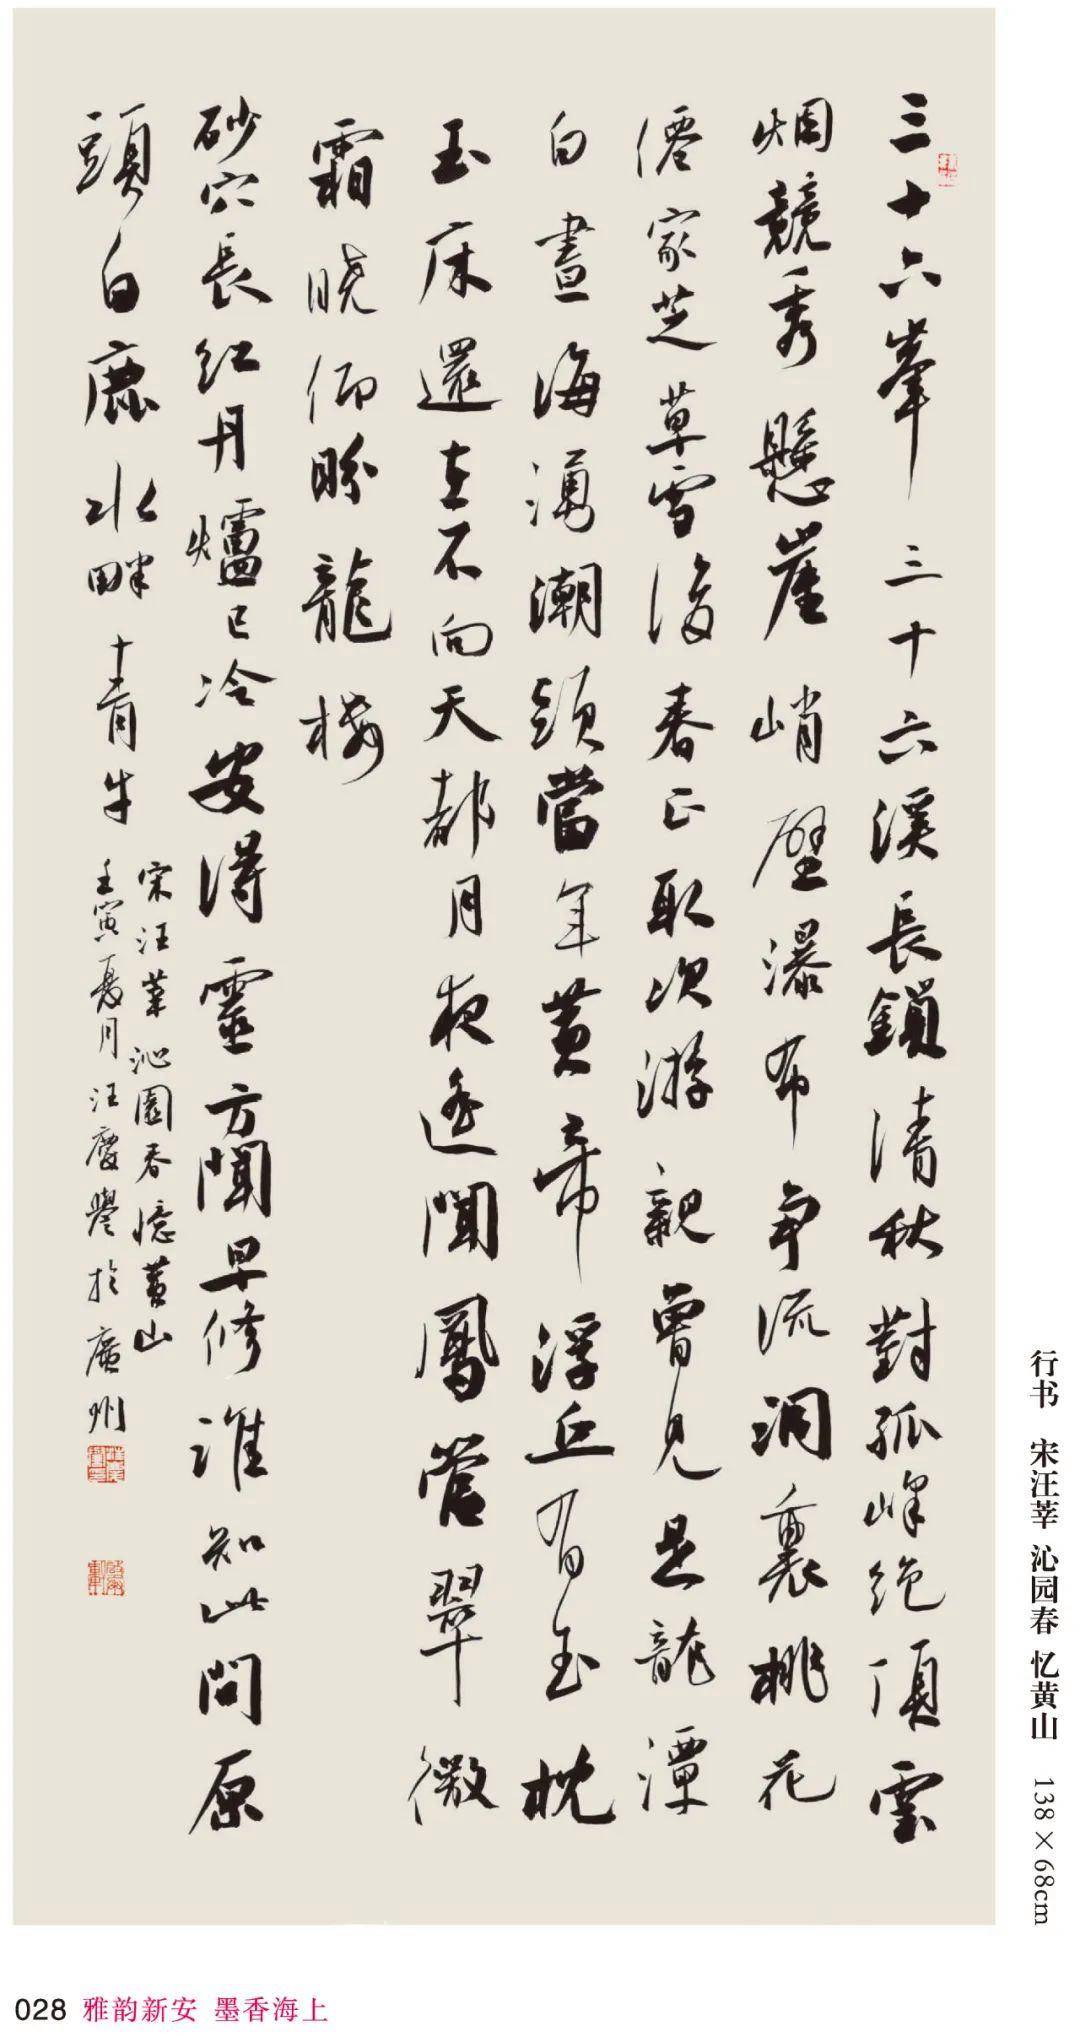 三十六峯三十六溪長鎖清秋對孤峰絶頂雲
烟競秀懸崖峭壁瀑布爭流洞裏桃花
僊家芝草雪後春正取次游親曾見是龍潭
白晝海湧潮頭當年黄帝浮丘有玉枕
玉床還在不向天都月夜遥聞鳳管翠微
霜曉仰盼龍樓
砂穴長紅丹爐已冷安得靈方聞早修誰知此問原
頭白鹿水畔十青牛
宋汪莘沁園春憶黄山
壬寅夏月汪慶譽於廣州
行书 宋汪莘 沁园春 忆黄山 138×68cm
028 雅韵新安 墨香海上